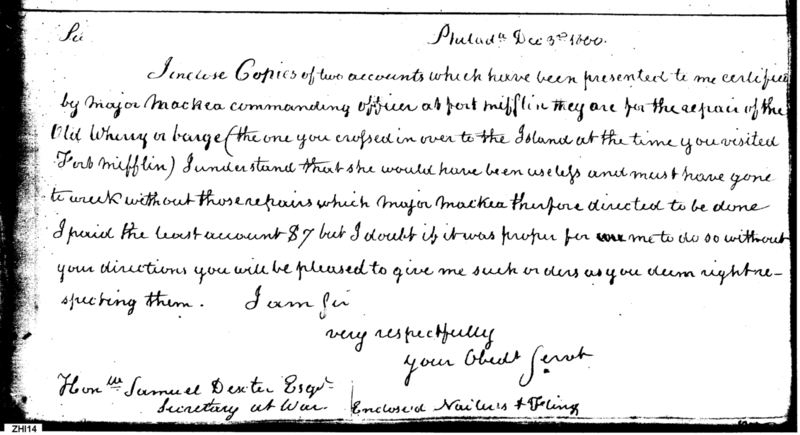 Sir Philad.a Dec 3rd 1800.
I inclose Copies of two accounts which have been presented to me certified
by Major Mackea commanding officer at fort mifflin they are for the repair of the
Old Wherry or barge (the one you crossed in over to the Island at the time you visited
Fort Mifflin) I understand that she would have been useless and must have gone
to wreck without those repairs which Major Mackea therfore directed to be done
I paid the least account $7 but I doubt if it was proper for me to do so without
your directions you will be pleased to give me such orders as you deem right re-
specting them. I am Sir
very respectfully
your Obedt Servt
Honble Samuel Dexter Esqr.
Secretary at War Enclose'd &
ZHI14